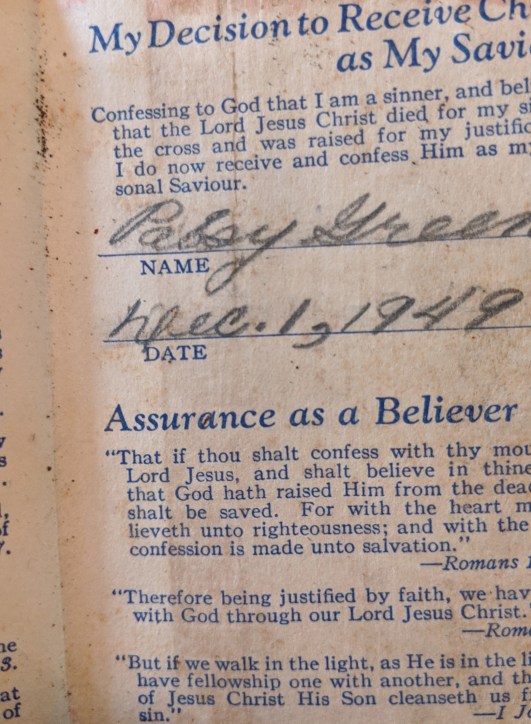 My Decision to Receive Ch
as My Savi
Confessing to God that I am a sinner, and bel
that the Lord Jesus Christ died for my s
the cross and was raised for my justific
I do now receive and confess Him as m
sonal Saviour.
Green
NAME
Dec. 1, 1949
DATE
Assurance as a Believer
"That if thou shalt confess with thy mou
Lord Jesus, and shalt believe in thine
that God hath raised Him from the dead
shalt be saved. For with the heart m
lieveth unto righteousness; and with the
confession is made unto salvation."
—Romans 1
"Therefore being justified by faith, we hav
with God through our Lord Jesus Christ.
—Rom
"But if we walk in the light, as He is in the li
have fellowship one with another, and th
of Jesus Christ His Son cleanseth us f
sin."
—I J